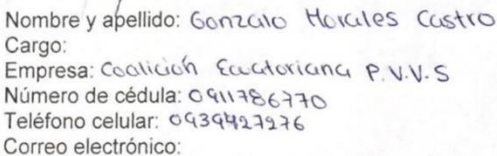 Nombre y apellido: Gonzalo Morales Castro
Cargo:
Empresa: Coalición Ecuatoriana P.V.V.S
Número de cédula: 0911786770
Teléfono celular: 0939427276
Correo electrónico: